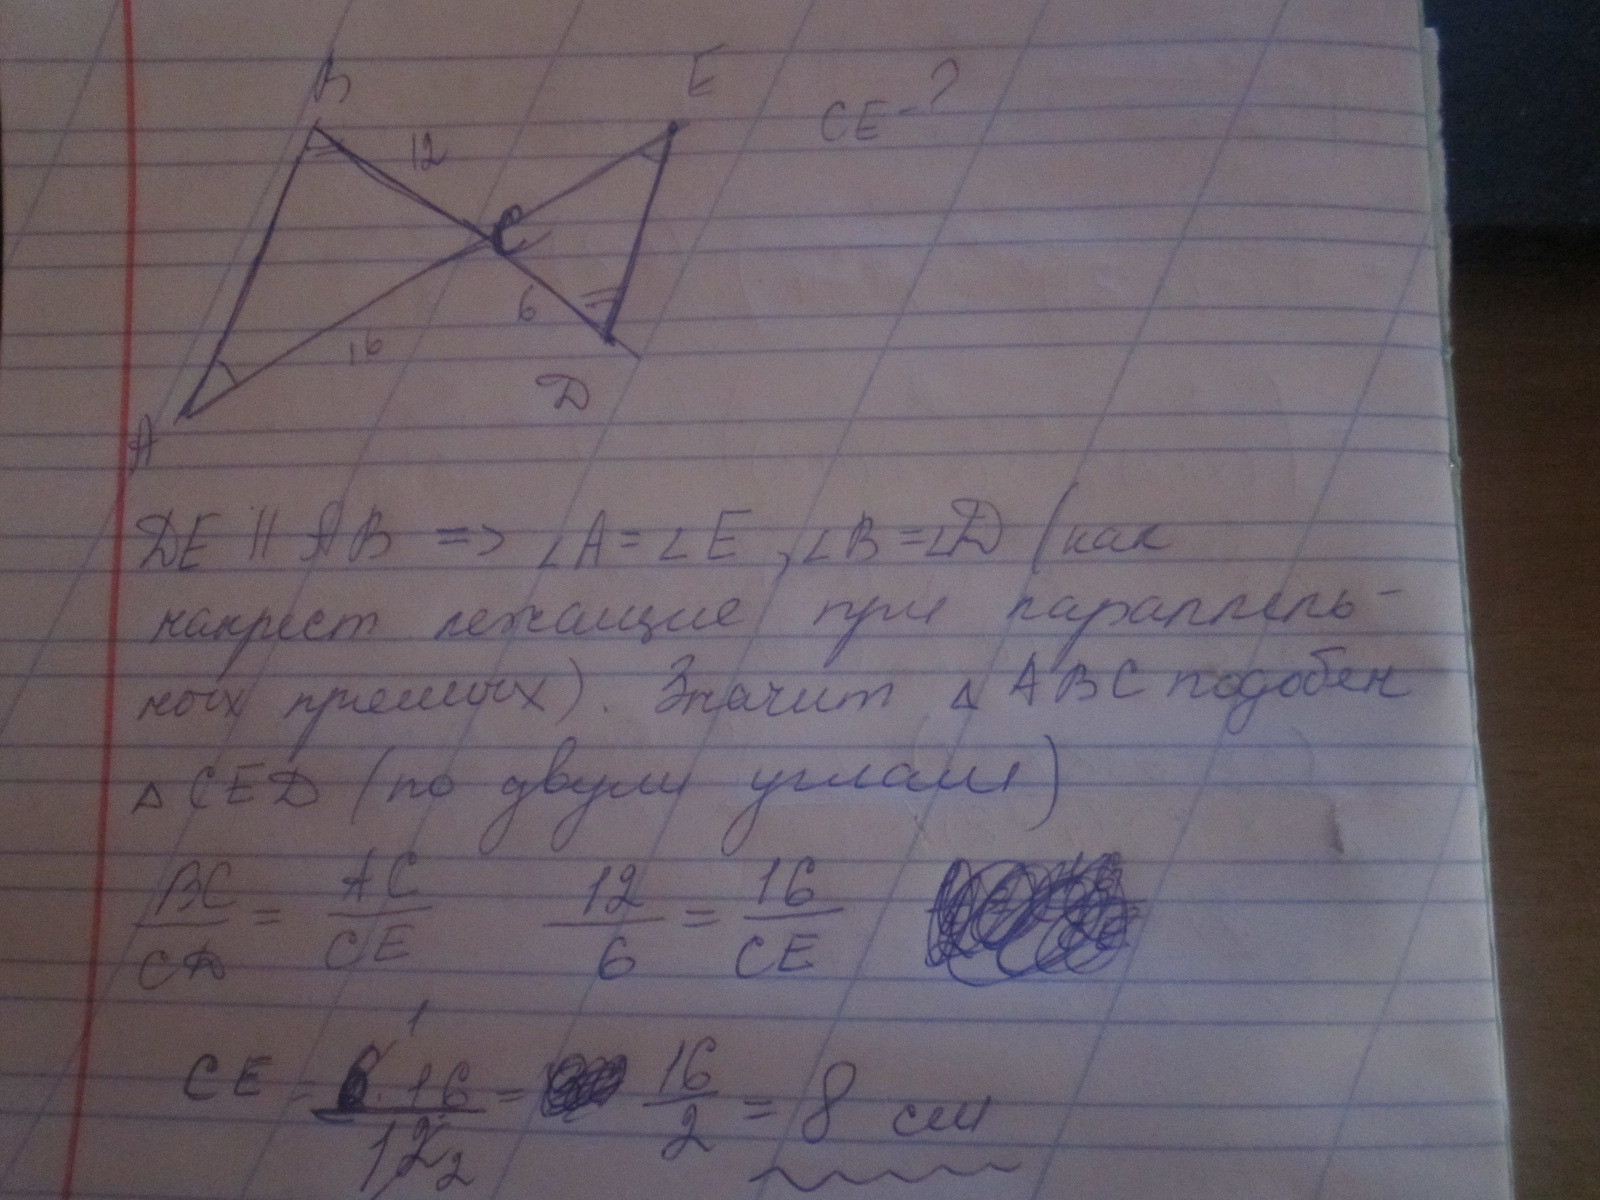 B
E
CE - ?
12
C
6
16
D
A
DE || AB => ∠A = ∠E , ∠B = ∠D (как
накрест лежащие при параллель-
ных прямых). Значит △ ABC подобен
△ CED (по двум углам)
BC/CD = AC/CE 12/6 = 16/CE
CE = 6·16/12 = 16/2 = 8 см
1
2